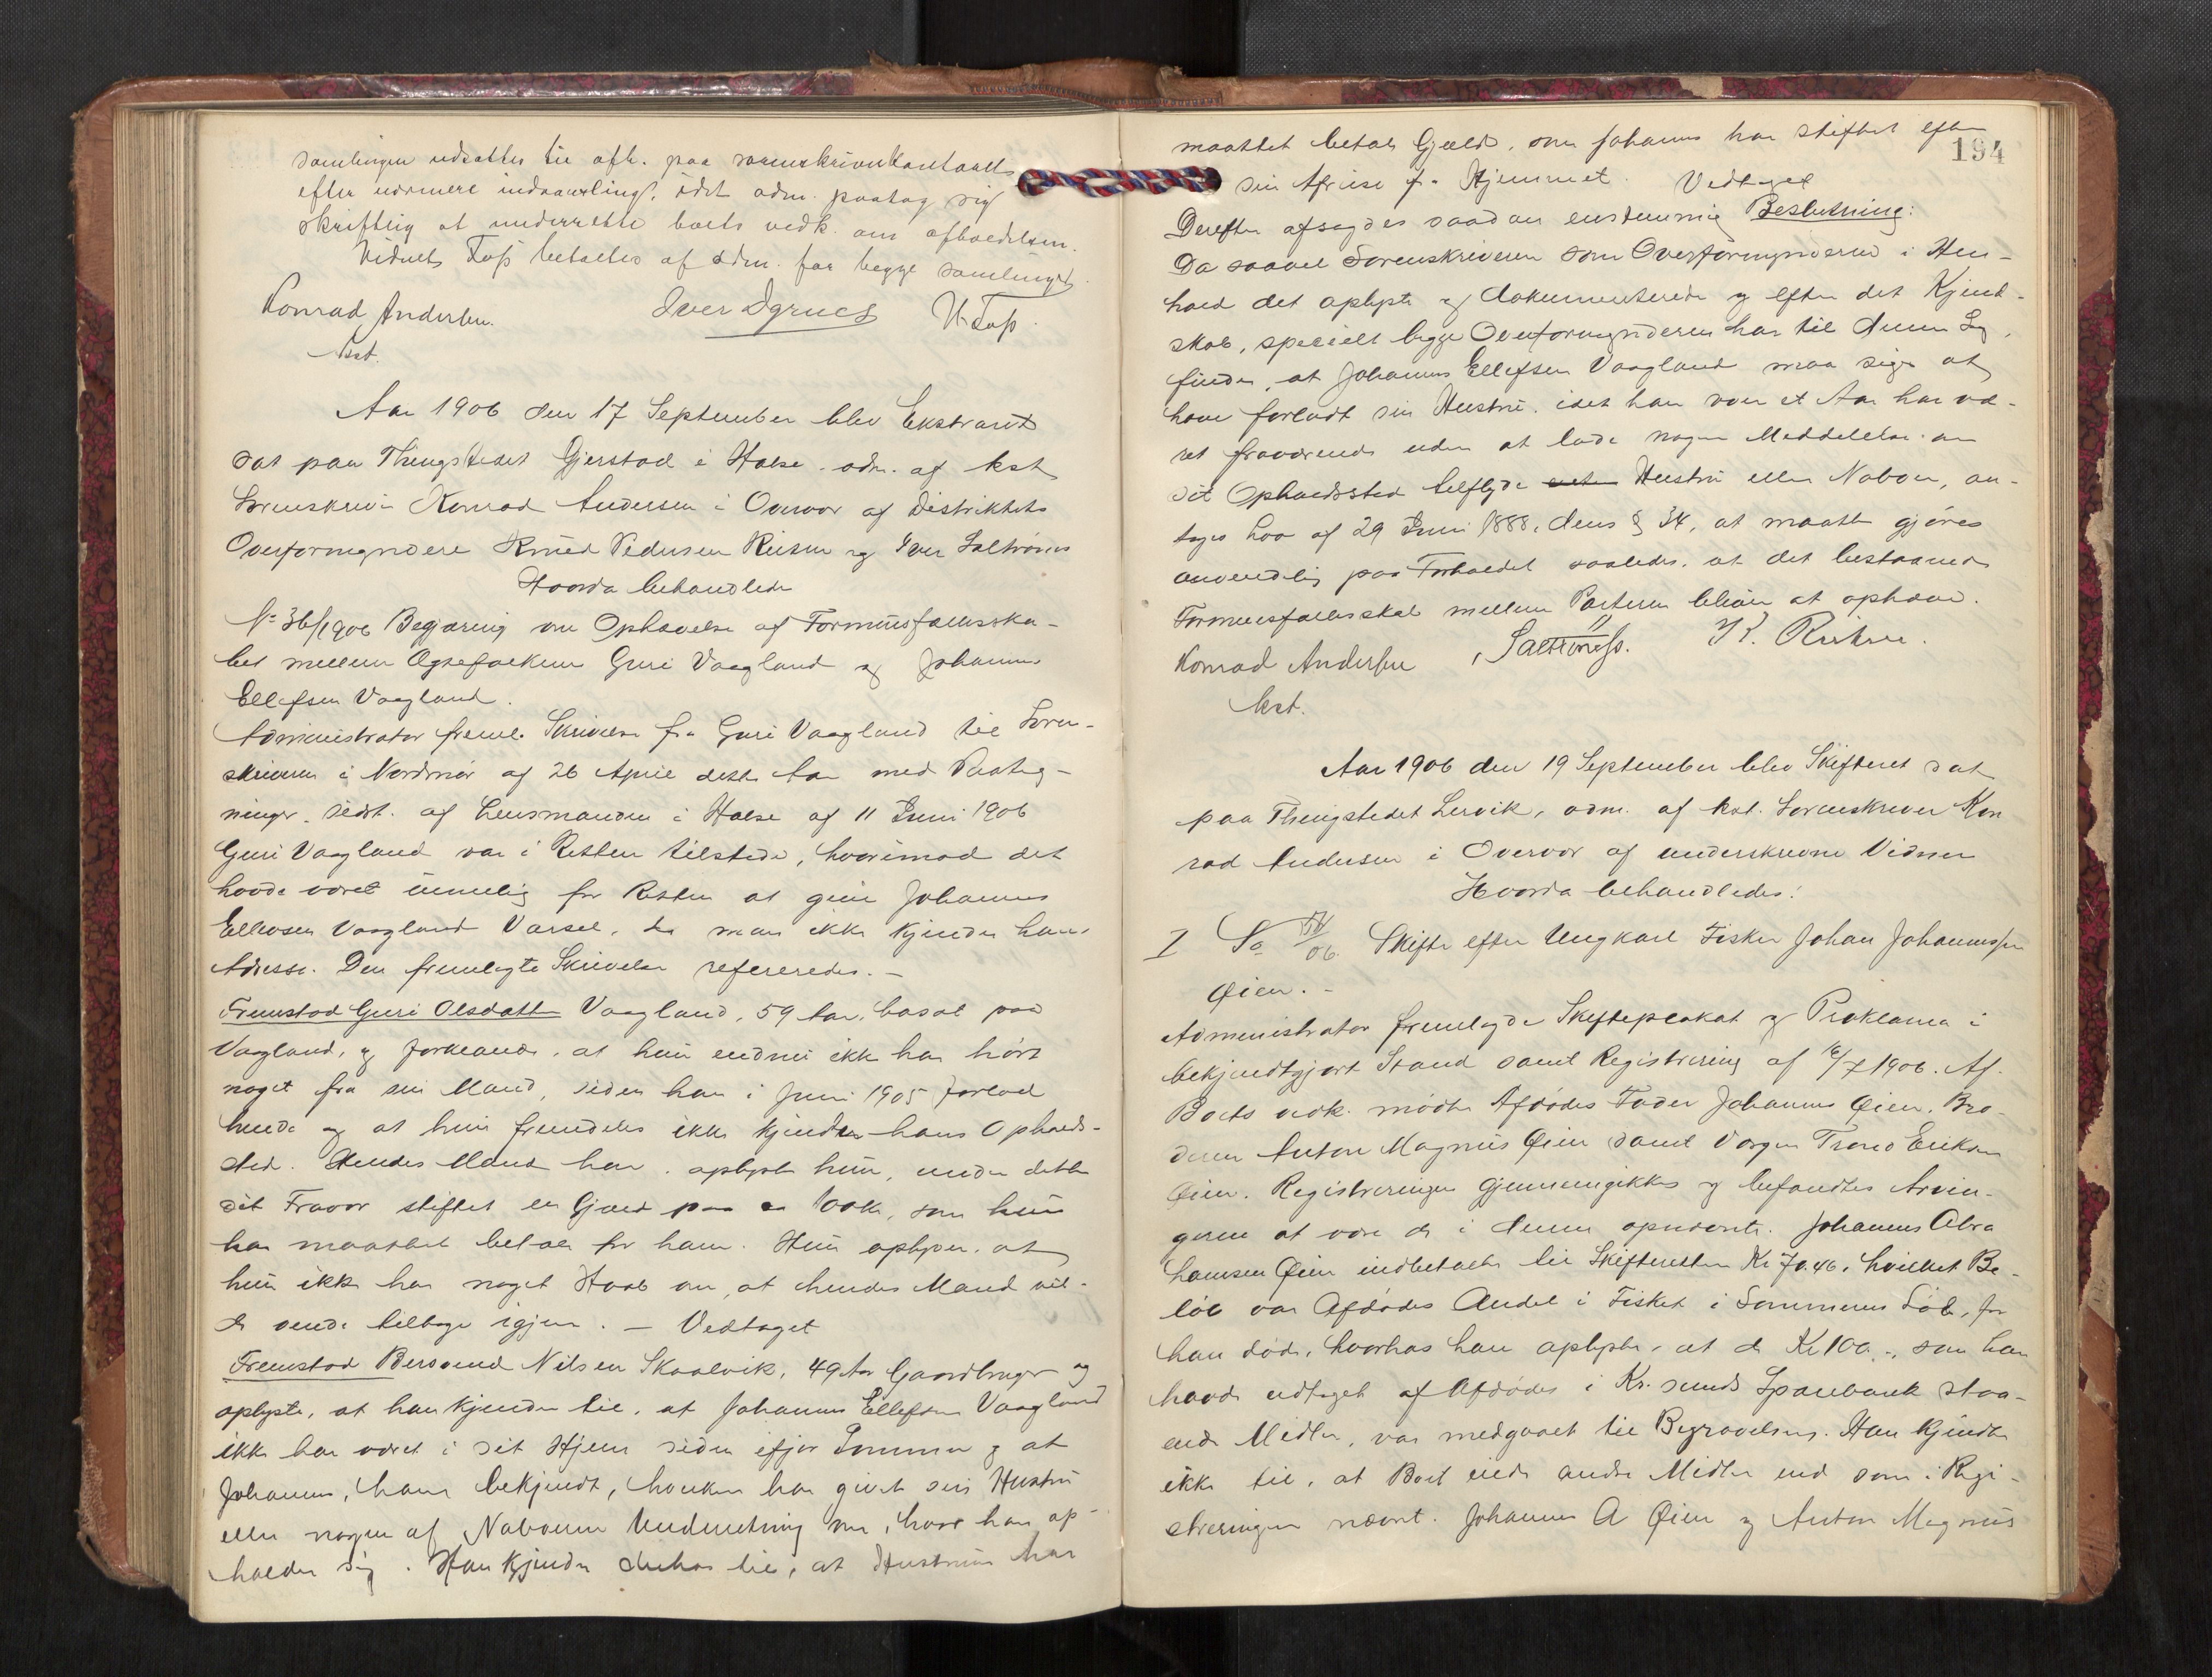 samlingen udsattes til afh. paa sorenskriverkontoret
efter nærmere indvarsling, idet adm. paatog sig
skriftlig at underrette boets vedk. om afholdelsen.
Vidnets Foss betaltes af adm. for begge samlinger.
Konrad Andersen. Iver Ogrues H. Foss.
kst.
Aar 1906 den 17 September blev Ekstraret
sat paa Thingstedet Gjerstad i Halse. adm. af kst
Sorenskriver Konrad Andersen i Overvær af Distriktets
Overformyndere Knud Pedersen Riksen og Iver Saltrønes
Hvorda behandledes
No 36/1906 Begjæring om Ophævelse af Formuesfællesska-
bet mellem Ægtefolkene Guri Vaagland og Johannes
Ellefsen Vaagland.
Administrator freml. Skrivelse fra Guri Vaagland til Soren-
skriveren i Nordmør af 26 April dette Aar med Paateg-
ninger. sidst. af Lensmanden i Halse af 11 Juni 1906
Guri Vaagland var i Retten tilstede, hvorimod det
havde været umulig for Retten at give Johannes
Ellevsen Vaagland Varsel, da man ikke kjender hans
Adresse. Den fremlagte Skrivelse refereredes. -
Fremstod Guri Olsdatter Vaagland, 59 Aar, bosat paa
Vaagland, og forklarede, at hun endnu ikke har hørt
noget fra sin Mand, siden han i Juni 1905 forlod
hende og at hun fremdeles ikke kjender hans Opholds-
sted. Hendes Mand har, oplyste hun, under dette
sit Fravær stiftet en Gjæld paa ca 100 Kr, som hun
har maattet betale for ham. Hun oplyser, at
hun ikke har noget Haab om, at hendes Mand vil-
de vende tilbage igjen. - Vedtaget
Fremstod Bersvend Nilsen Skaalvik, 49 Aar Gaardbruger og
oplyste, at han kjender til, at Johannes Ellefsen Vaagland
ikke har været i sit Hjem siden ifjor Sommer og at
Johannes, ham bekjendt, hverken har givet sin Hustru
eller nogen af Naboerne Underretning om, hvor han op-
holder sig. Han kjender derhos til, at Hustruen har
194
maattet betale Gjæld, som Johannes har stiftet efter
sin Afreise fra Hjemmet. Vedtaget
Derefter afsagdes saadan enstemmig Beslutning:
Da saavel Sorenskriveren som Overformynderne i Hen-
hold det oplyste og dokumenterede og efter det Kjend-
skab, specielt begge Overformyndere har til denne Sag,
finder, at Johannes Ellefsen Vaagland maa siges at
have forladt sin Hustru, idet han over et Aar har væ-
ret fraværende uden at lade nogen Meddelelse om
sit Opholdssted tilflyde Hustru eller Naboer, an-
tages Lov af 29 Juni 1888, dens § 34, at maatte gjøres
anvendelig paa Forholdet saaledes, at det bestaaende
Formuesfællesskab mellem Parterne bliver at ophæve.
Konrad Andersen I. Saltrønes. K P. Riksen.
kst.
Aar 1906 den 19 September blev Skifteret sat
paa Thingstedet Lervik, adm. af kst. Sorenskriver Kon
rad Andersen i Overvær af underskrevne Vidner
Hvorda behandledes:
I No /06. Skifte efter Ungkarl Fisker Johan Johannessen
Øien. -
Administrator fremlagde Skifteplakat og Proklama i
bekjendtgjort Stand samt Registrering af 16/7 1906. Af
Boets vedk. mødte Afdødes Fader Johannes Øien, Bro-
deren Anton Magnus Øien samt Værgen Trond Eriksen
Øien. Registreringen gjennemgikkes og befandtes Arvin-
gerne at være de i denne opnævnte. Johannes Abra
hamsen Øien indbetalte til Skifteretten Kr 70.46, hvilket Be-
løb var Afdødes Andel i Fisket i Sommerens Løb, før
han døde, hvorhos han oplyste, at de Kr 100.-, som han
havde udtaget af Afdødes i Kr.sunds Sparebank staa-
ende Midler, var medgaaet til Begravelsen. Han kjendte
ikke til, at Boet eiede andre Midler end som i Regi-
streringen nævnt. Johannes A Øien og Anton Magnus